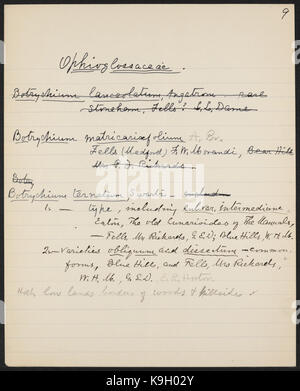 9
Ophioglossaceae.
Botrychium lanceolatum, Angstrom. rare
Stoneham, Fells? C.E. Dame
Botrychium matricariæfolium A. Br.
Fells (Medford) F.W. Morandi, Bear Hill
Mrs P.D. Richards.
Botry
Botrychium ternatum, Swartz
1. — type, including var. intermedium,
Eaton, The old lunarioides of The Manuals,
— Fells, Mrs Richards, G.E.D, Blue Hills, W.H.M.
2. — varieties obliquum and dissectum — common
forms, Blue Hill, and Fells, Mrs Richards,
W.H.M., G.E.D.
low lands borders of woods & hillsides
alamy
Image ID: W9H02Y
www.alamy.com